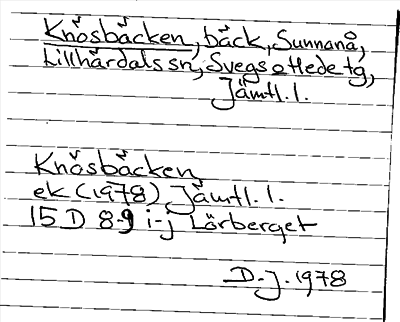 Knösbäcken, bäck, Sunnanå,
Lillhärdals sn, Svegs o Hede tg,
Jämtl. l.
Knösbäcken,
ek (1978) Jämtl. l.
15 D 8-9 i-j Lörberget
D.J. 1978